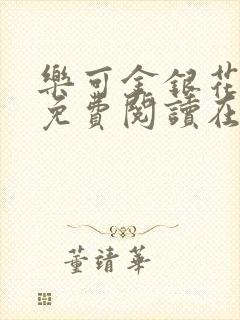 樂可金銀花
免費閱讀在
董靖華